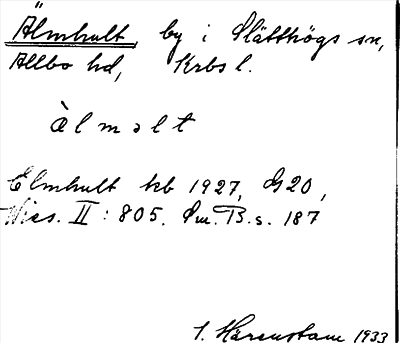 Älmhult, by i Slätthögs sn,
Allbo hd, Krbs l.
àlməlt
Elmhult kb 1927, G20,
Wies. II : 805. Sm. B. s. 187
1. Härenstam 1933